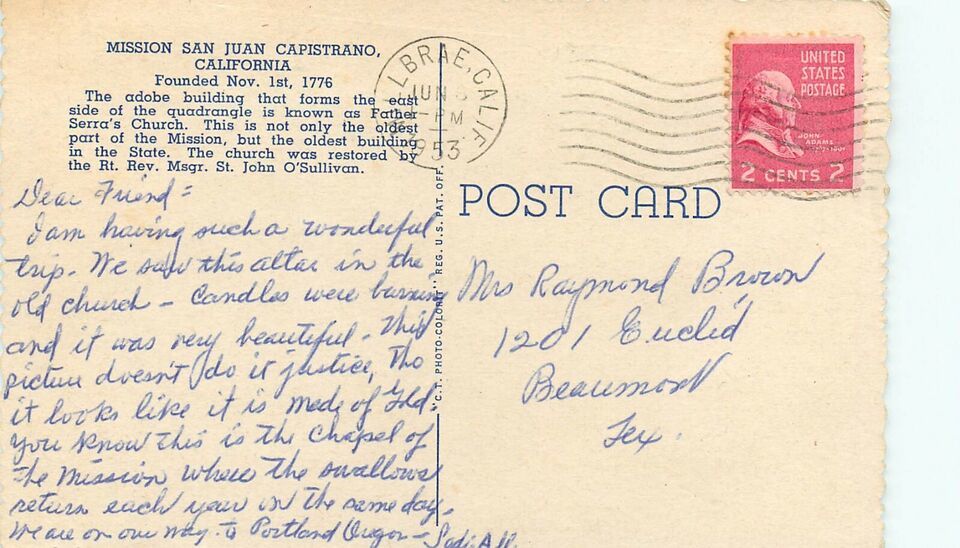 MISSION SAN JUAN CAPISTRANO,
CALIFORNIA
Founded Nov. 1st, 1776
The adobe building that forms the east
side of the quadrangle is known as Father
Serra's Church. This is not only the oldest
part of the Mission, but the oldest building
in the State. The church was restored by
the Rt. Rev. Msgr. St. John O'Sullivan.
LLBRAE, CALIF.
JUN
PM
1953
UNITED
STATES
POSTAGE
JOHN
ADAMS
2 CENTS 2
POST CARD
"C.T. PHOTO-COLORIT" REG. U.S. PAT. OFF.
Dear Friend =
I am having such a wonderful
trip. We saw this altar in the
old church - Candles were burning
and it was very beautiful. This
picture doesn't do it justice, Tho
it looks like it is made of Gold.
You know this is the Chapel of
the Mission where the swallows
return each year on the same day.
We are on our way to Portland Oregon -
Mrs Raymond Brown
1201 Euclid
Beaumont
Tex.